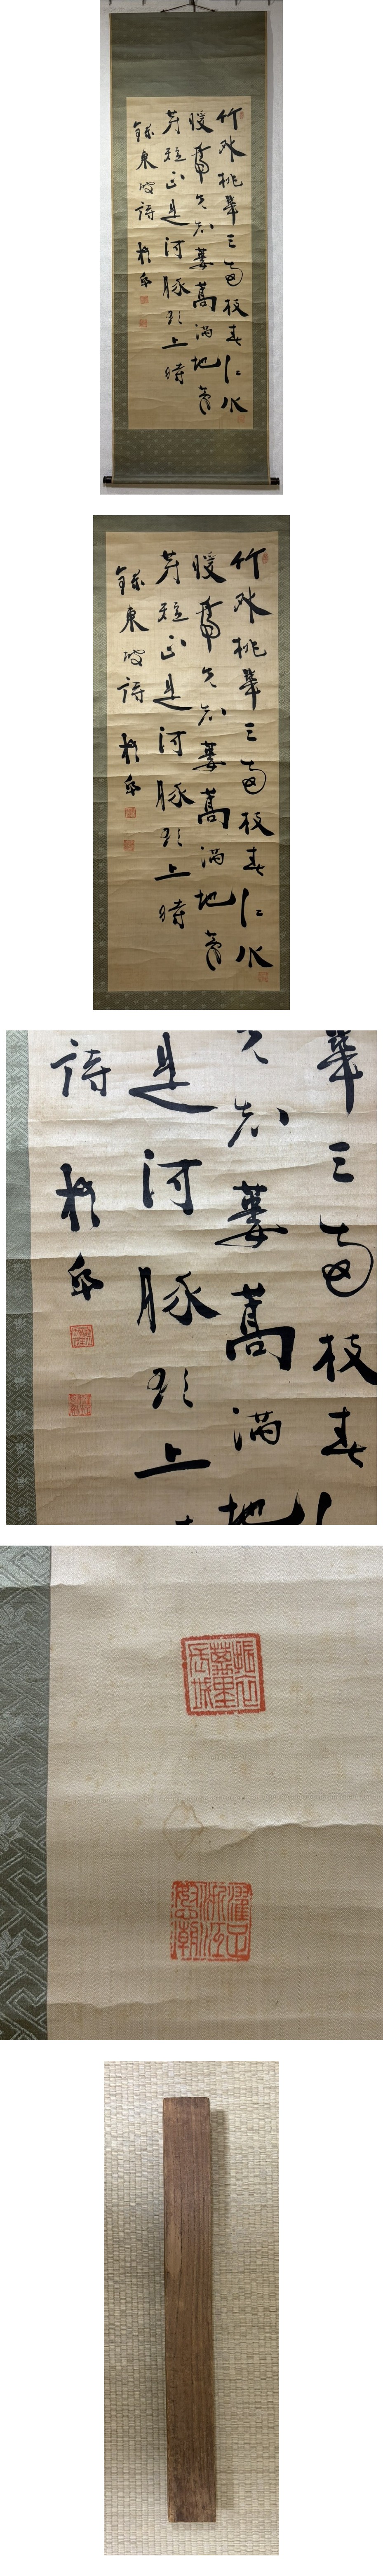 竹外桃華三兩枝春江水
暖鴨先知蔞蒿滿地蘆
芽短正是河豚欲上時
錄東坡詩